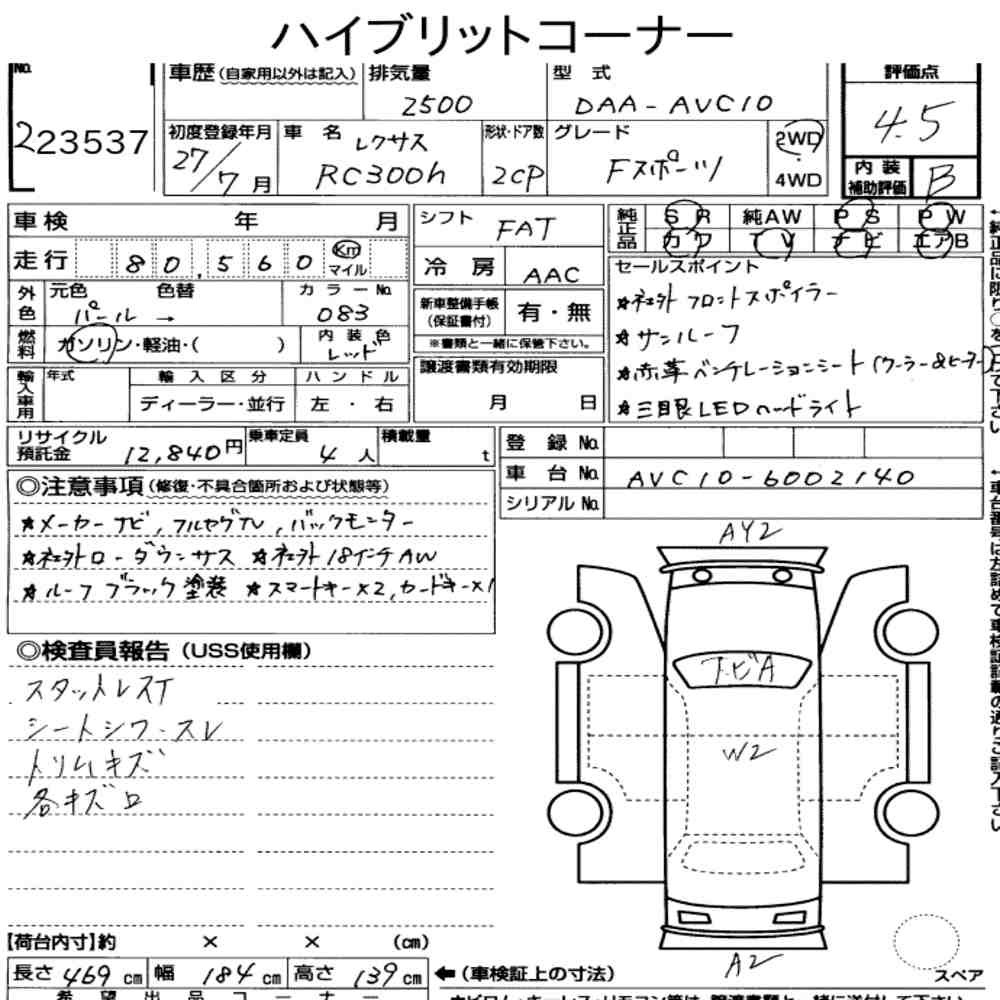 ハイブリットコーナー
No. 223537
車歴 (自家用以外は記入)
排気量 2500
型式 DAA-AVC10
評価点 4.5
初度登録年月 27/7月
車名 レクサス RC300h
形状・ドア数 2CP
グレード Fスポーツ
2WD
4WD
内装補助評価 B
車検 年 月
走行 80,560 Km マイル
外色 元色 パール → 色替
カラーNo. 083
燃料 ガソリン・軽油・( )
内装色 レッド
輸入車用 年式
輸入区分 ディーラー・並行
ハンドル 左・右
シフト FAT
冷房 AAC
新車整備手帳(保証書付) 有・無
※書類と一緒に保管下さい。
譲渡書類有効期限
月 日
純正品 SR 純AW PS PW
カワ TV ナビ エアB
セールスポイント
★社外フロントスポイラー
★サンルーフ
★赤革ベンチレーションシート(クーラー&ヒーター)
★三眼LEDヘッドライト
リサイクル預託金 12,840円
乗車定員 4人
積載量 t
登録No.
車台No. AVC10-6002140
シリアルNo.
◎注意事項(修復・不具合箇所および状態等)
★メーカーナビ,フルセグTV,バックモニター
★社外ローダウンサス ★社外18インチAW
★ルーフブラック塗装 ★スマートキー×2,カードキー×1
◎検査員報告(USS使用欄)
スタットレスT
シートシワ・スレ
トリムキズ
各キズ
AY2
トビA
W2
A2
スペア
【荷台内寸】約 × × (cm)
長さ 469 cm 幅 184 cm 高さ 139 cm
←(車検証上の寸法)
希望出品コーナー
←車台番号は左詰めで車検証記載の通りご記入下さい